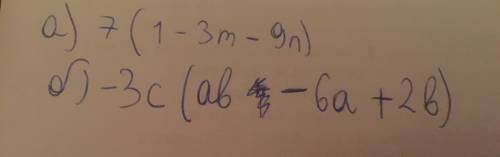 а) 7 (1 - 3m - 9n)
б) -3c (ab - 6a + 2b)